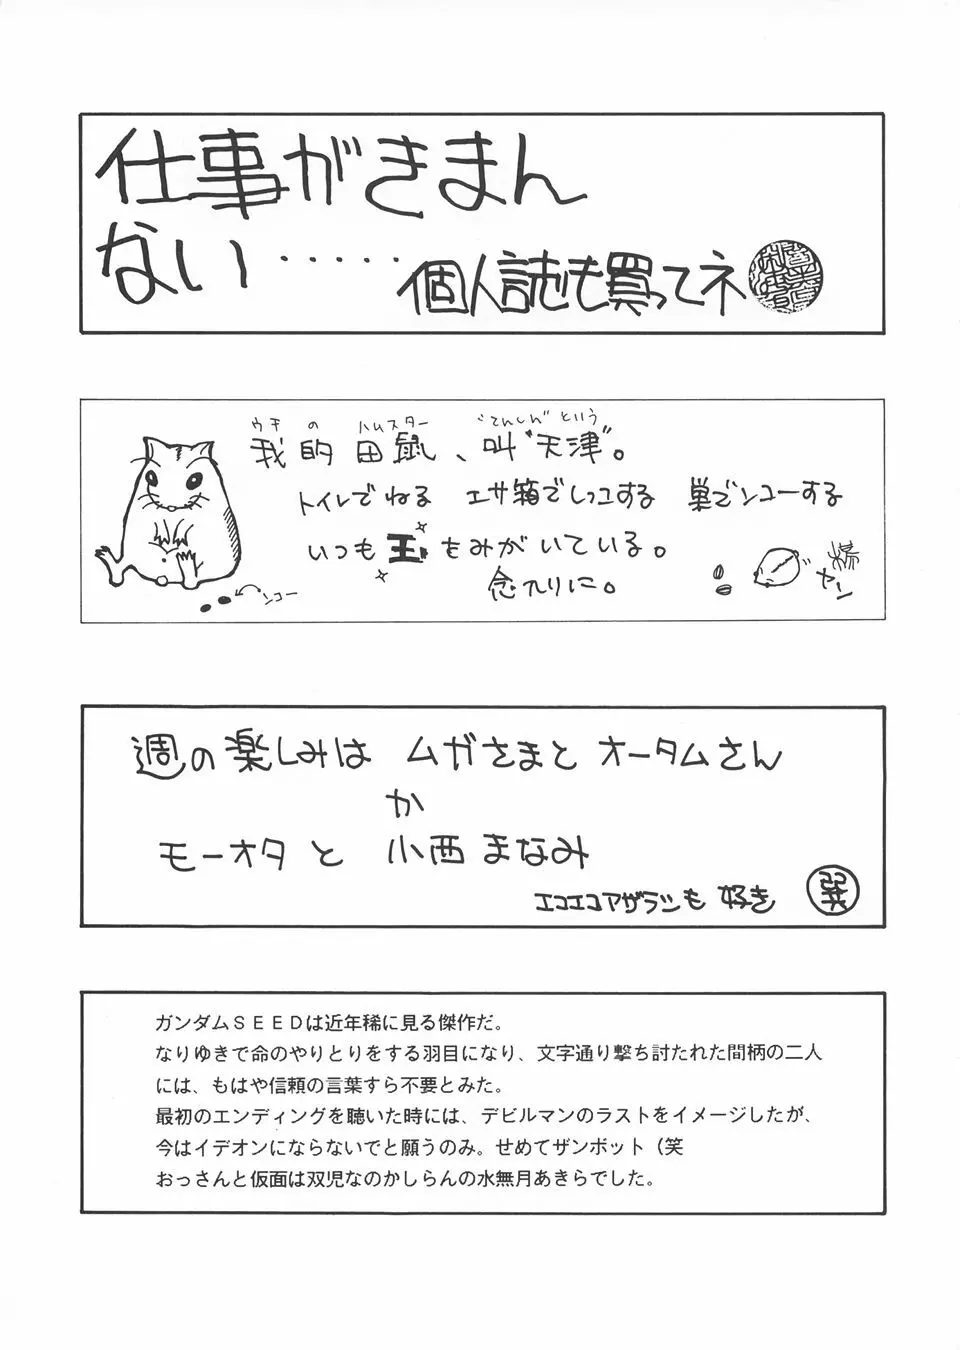 仕事がきまん
ない・・・・・個人誌も買ってネ
ウチ の ハムスター “てんしん”という
我的田鼠、叫“天津”。
トイレでねる エサ箱でしっコする 巣でンコーする
いつも玉をみがいている。
念入りに。
ンコー
ヤーン
週の楽しみは ムガさまと オータムさん
か
モーオタ と 小西まなみ
エコエコアザラシも 好き
巽
ガンダムSEEDは近年稀に見る傑作だ。
なりゆきで命のやりとりをする羽目になり、文字通り撃ち討たれた間柄の二人
には、もはや信頼の言葉すら不要とみた。
最初のエンディングを聴いた時には、デビルマンのラストをイメージしたが、
今はイデオンにならないでと願うのみ。せめてザンボット（笑
おっさんと仮面は双児なのかしらんの水無月あきらでした。